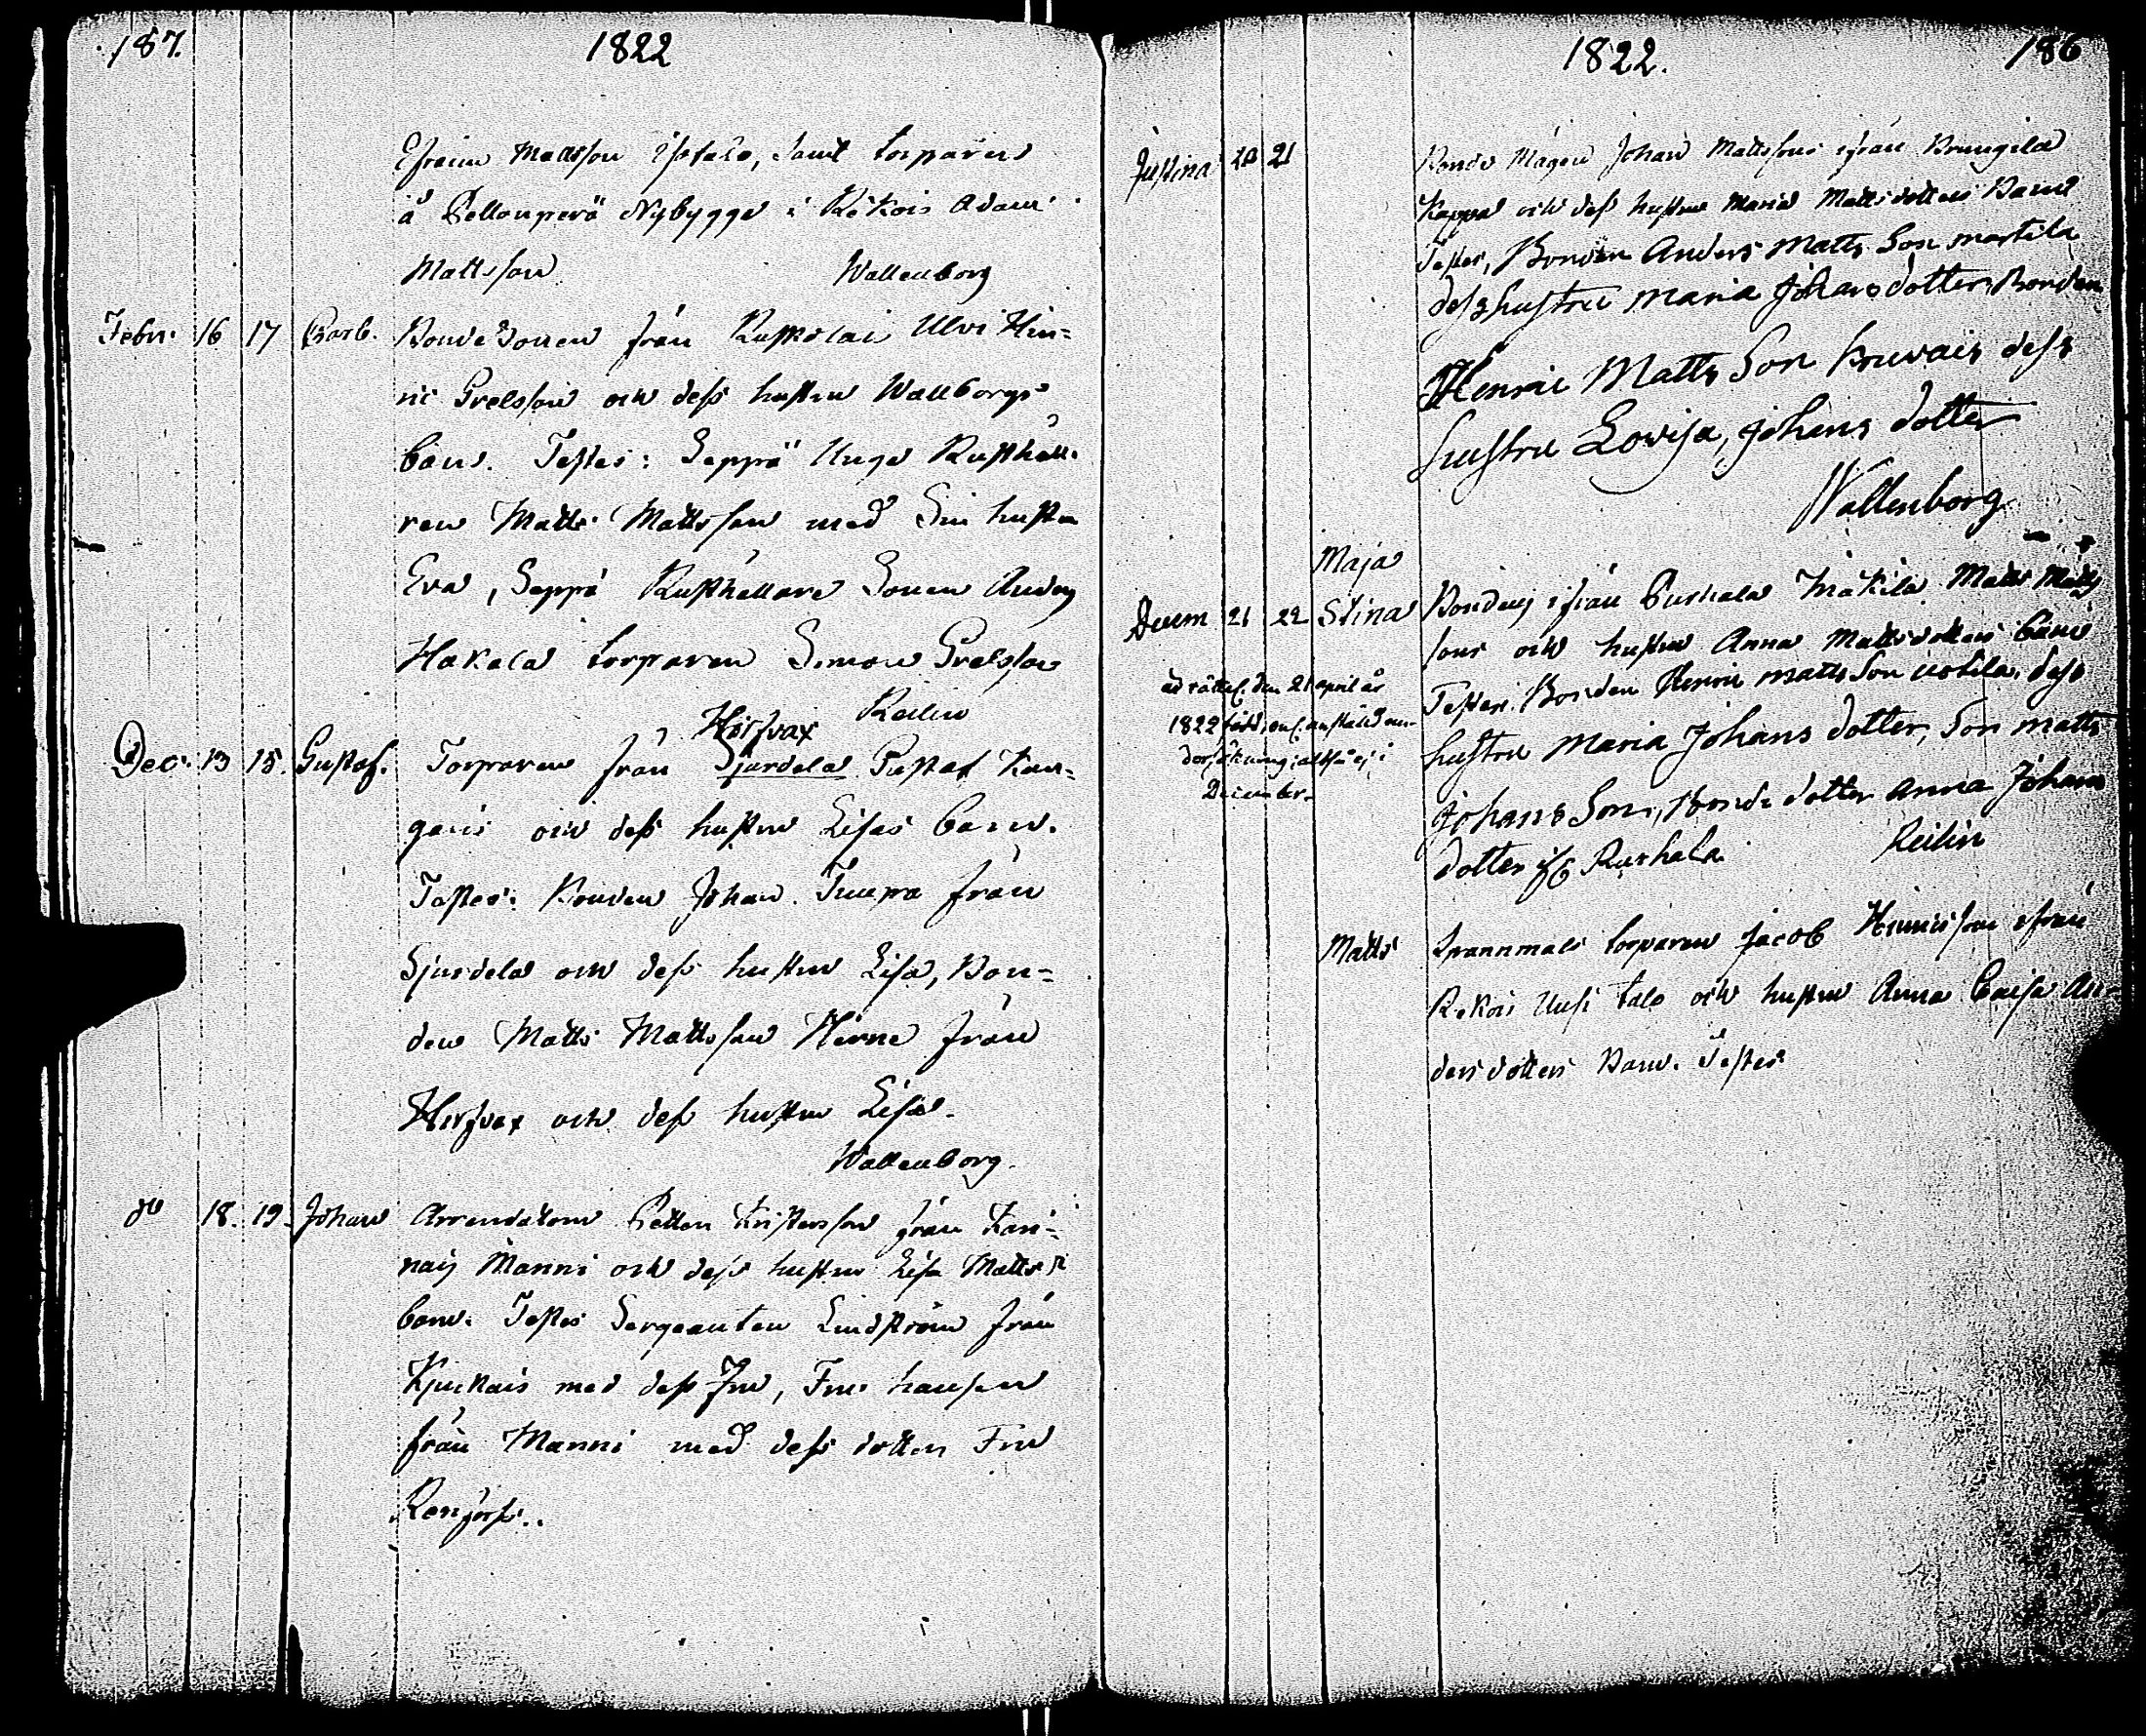 187.
1822
Efraim Mattsson Isotalo, samt torparen
å Pellonperä Nybygge i Rekois Adam
Mattsson
Wallenborg
Febr. 16 17 Barb. Bonde Sonen från Ruskolai Ulvi Hin=
ric Grelsson och dess hustru Wallborgs
barn. Testes: Seppä Unge Rusthål=
ren Matts Mattsson med Sin hustru
Eva, Seppä Rusthållare Sonen Anders
Hakala torparen Simon Grelsson
Reilin
Hirsvax
Dec. 13 15. Gustaf. Torparen från Sjurdela Gustaf Kan=
gais och dess hustru Lisas barn.
Testes: Bonden Johan Tuupa från
Sjurdela och dess hustru Lisa, Bon=
den Matts Mattsson Hirne från
Hirsvax och dess hustru Lisa.
Wallenborg.
do 18. 19. Johan Arrendatorn Petter Kristersson från Kari=
nais Manni och dess hustru Lisa Matts
barn. Testes Sergeanten Lindström från
Kjuckais med dess Fru, Fru
från Manni med dess dotter Fru
Renfors.
1822.
186
Justina 20 21 Bonde Mågen Johan Mattssons ifrån
Kappa och dess hustru Maria Mattsdotters Barn
Testes, Bonden Anders Matts Son Martila
dess hustru Maria Johans dotter, Bonden
Henric Matts Son dess
hustru Lovisa, Johans dotter
Wallenborg
Maja
Decem 21 22 Stina Bondens ifrån Purhala Mäkilä Matts Matts
sons och hustru Anna Mattsdotters barn
den 21 april år
1822 född, enl. anstäld un-
dersökning; altså ej i
December.
Testes. Bonden Henric Matts Son dess
hustru Maria Johans dotter, Son Matts
Johans Son, Bonde dotter Anna Johans
dotter if: Purhala
Reilin
Matts Spannmåls torparen Jacob Henricsson ifrån
Rekois Uusi talo och hustru Anna Caisa An-
ders dotters Barn. Testes